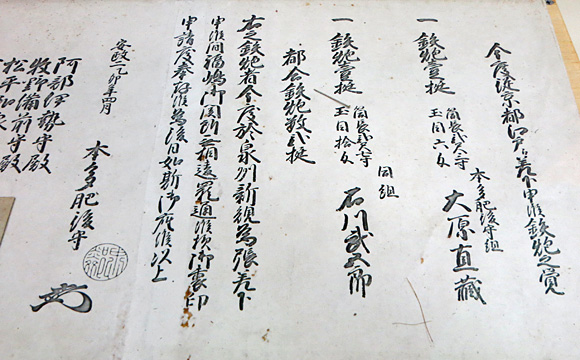 今度従京都江戸江差下申候鉄炮之覚
一 鉄炮壹挺
玉目六匁
本多肥後守組
大原直蔵
一 鉄炮壹挺
玉目拾匁
同組
石川武五郎
都合鉄炮数弐挺
右之鉄炮者今度於泉州新規為張差下
申候間福嶋御関所無相違罷通候様御裏印
申請度奉存候為後日如斯御座候以上
安政二卯年四月
本多肥後守
阿部伊勢守殿
牧野備前守殿
松平和泉